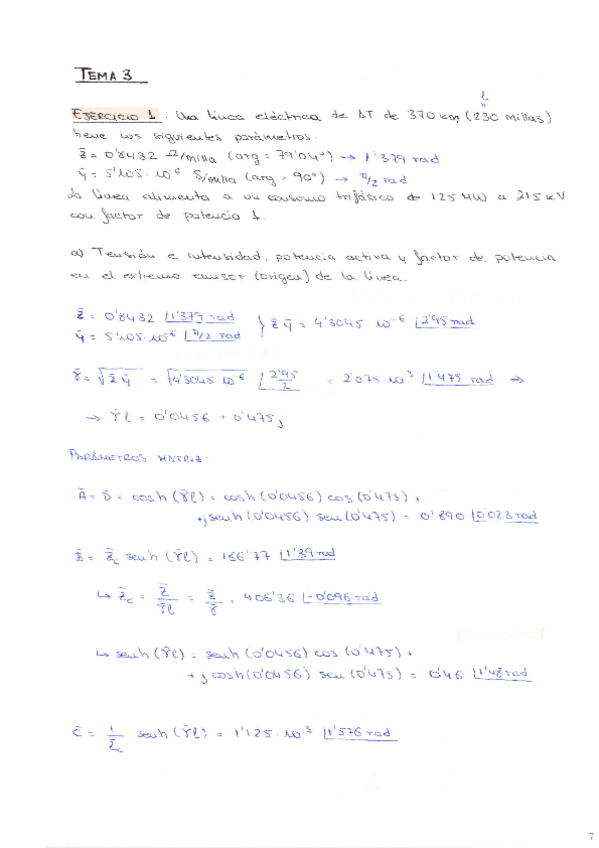 TEMA 3
l
"
EJERCICIO 1. Una línea eléctrica de AT de 370 km (230 millas)
tiene los siguientes parámetros.
z̄ = 0'8432 Ω/milla (arg = 79'04°) → 1'379 rad
ȳ = 5'105·10⁻⁶ S/milla (arg = 90°) → π/2 rad
La línea alimenta a un consumo trifásico de 125 MW a 215 kV
con factor de potencia 1.
a) Tensión e intensidad, potencia activa y factor de potencia
en el extremo emisor (origen) de la línea.
z̄ = 0'8432 |1'379 rad
ȳ = 5'105·10⁻⁶ |π/2 rad } z̄ ȳ = 4'3045 10⁻⁶ |2'95 rad
γ̄ = √z̄ ȳ = √4'3045 10⁻⁶ |2'95/2 = 2'075·10³ |1'475 rad →
→ γ̄l = 0'0456 + 0'475j
PARÁMETROS MATRIZ:
Ā = D̄ = cosh (γ̄l) = cosh (0'0456) cos (0'475) +
+j senh (0'0456) sen (0'475) = 0'890 |0'023 rad
B̄ = Z̄c senh (γ̄l) = 166'77 |1'39 rad
↳ Z̄c = Z̄/γ̄l = z̄/γ̄ = 406'36 |-0'096 rad
↳ senh (γ̄l) = senh (0'0456) cos (0'475) +
+ j cosh (0'0456) sen (0'475) = 0'46 |1'48 rad
C̄ = 1/Z̄c senh (γ̄l) = 1'125·10⁻³ |1'576 rad
7